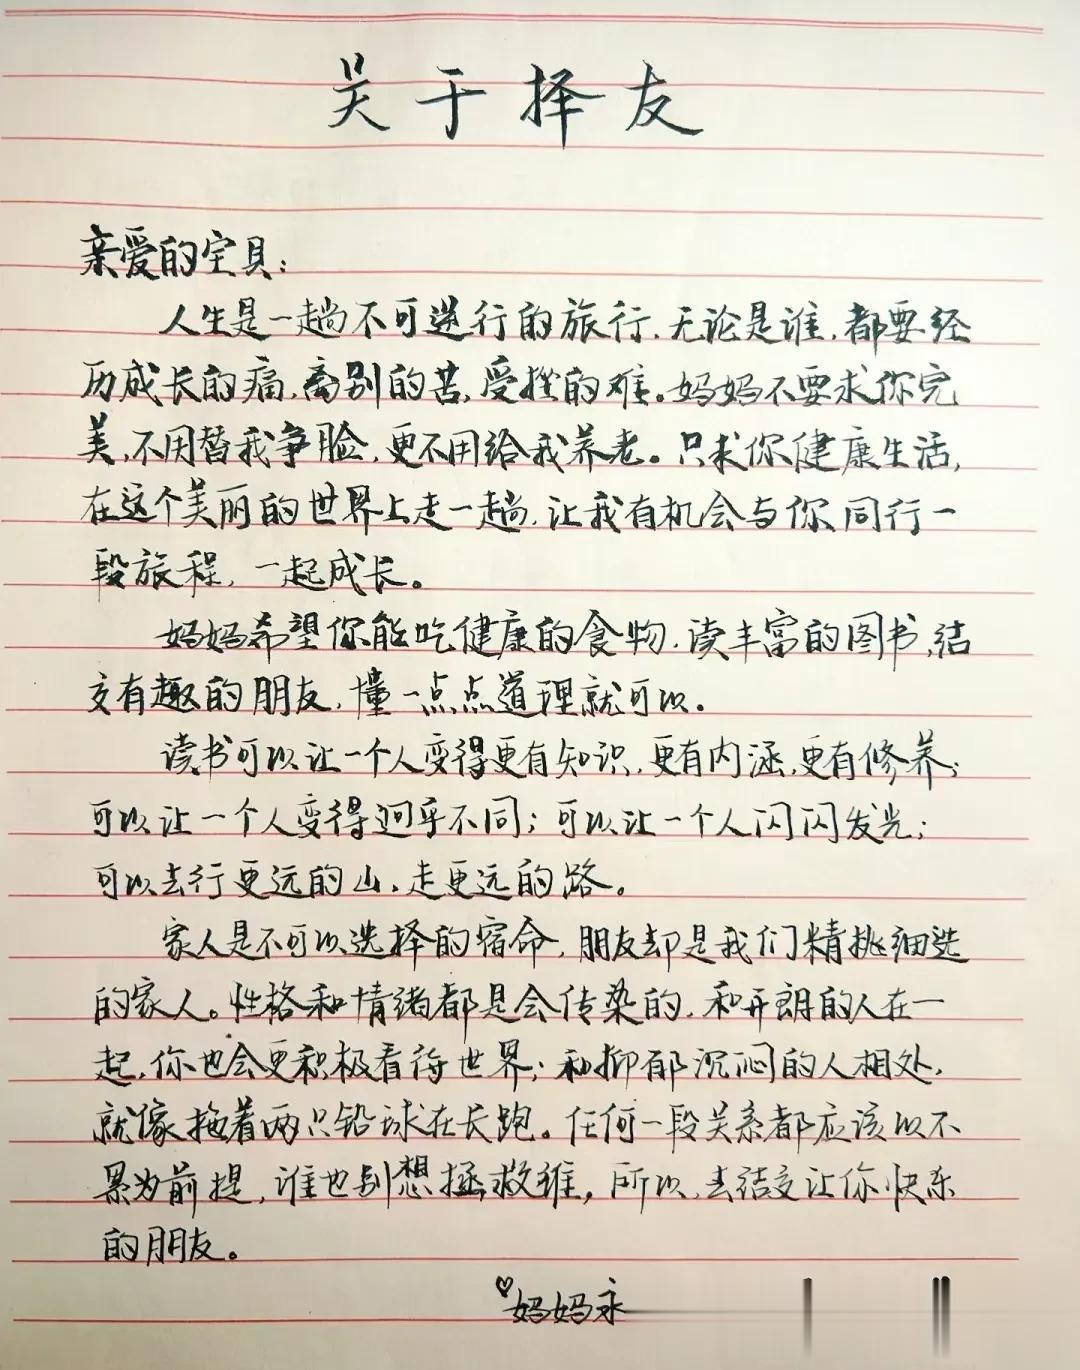 关于择友
亲爱的宝贝：
人生是一趟不可逆行的旅行，无论是谁，都要经
历成长的痛，离别的苦，受挫的难。妈妈不要求你完
美，不用替我争脸，更不用给我养老。只求你健康生活，
在这个美丽的世界上走一趟，让我有机会与你同行一
段旅程，一起成长。
妈妈希望你能吃健康的食物，读丰富的图书，结
交有趣的朋友，懂一点点道理就可以。
读书可以让一个人变得更有知识，更有内涵，更有修养；
可以让一个人变得迥乎不同；可以让一个人闪闪发光；
可以去行更远的山，走更远的路。
家人是不可以选择的宿命，朋友却是我们精挑细选
的家人。性格和情绪都是会传染的，和开朗的人在一
起，你也会更积极看待世界；和抑郁沉闷的人相处，
就像拖着两只铅球在长跑。任何一段关系都应该以不
累为前提，谁也别想拯救谁，所以，去结交让你快乐
的朋友。
♡妈妈永